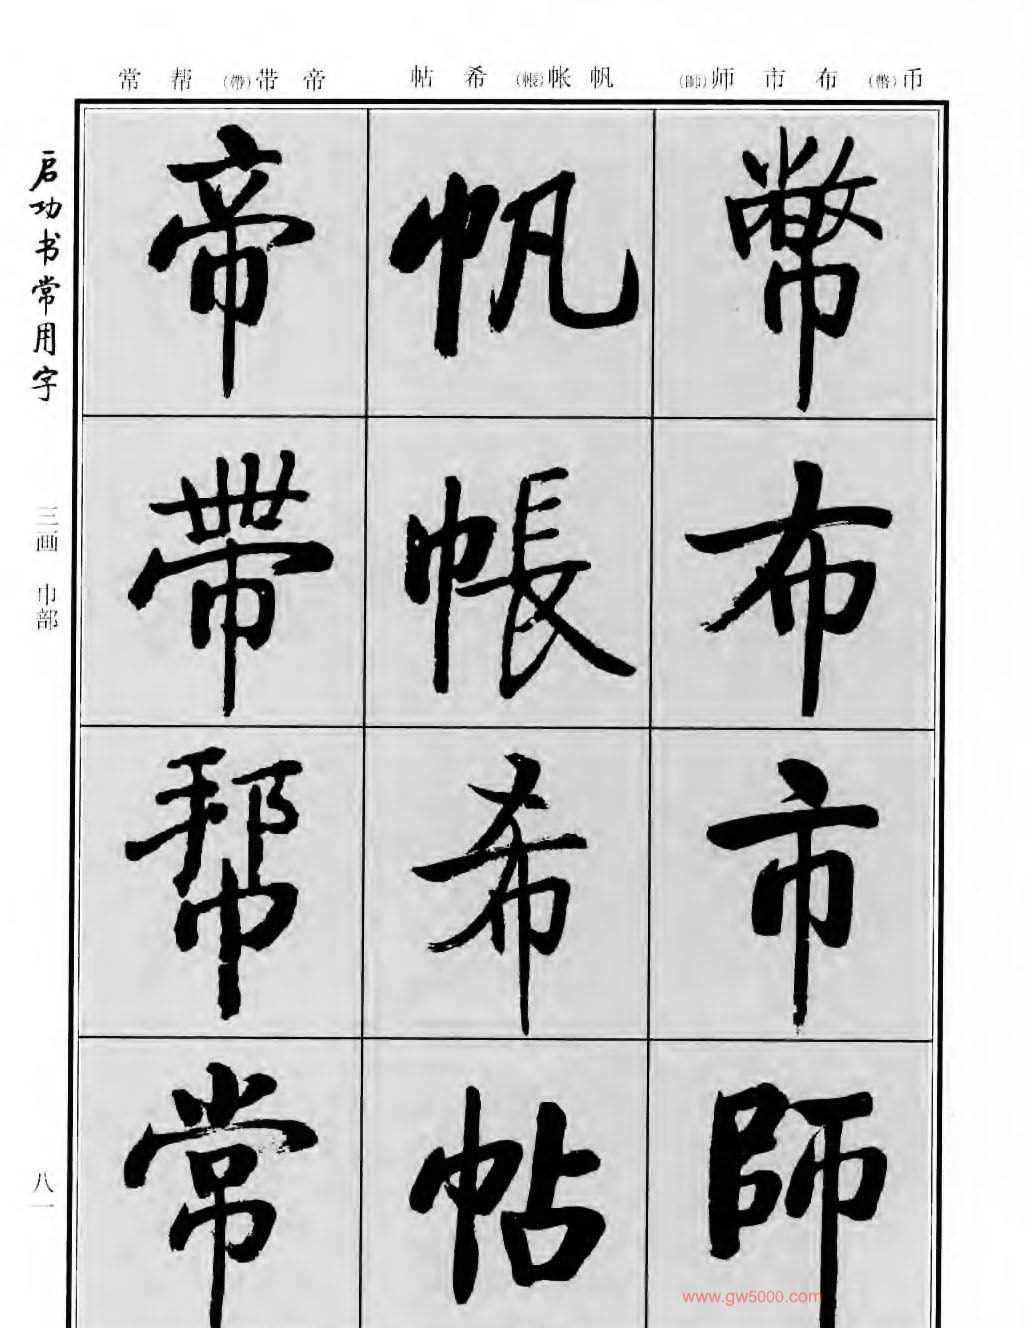 币(幣)布市师(師)
帆帐(帳)希帖
帝带(帶)帮常
幣
布
市
師
帆
帳
希
帖
帝
帶
帮
常
启功书常用字
三画 巾部
八一
www.gw5000.com